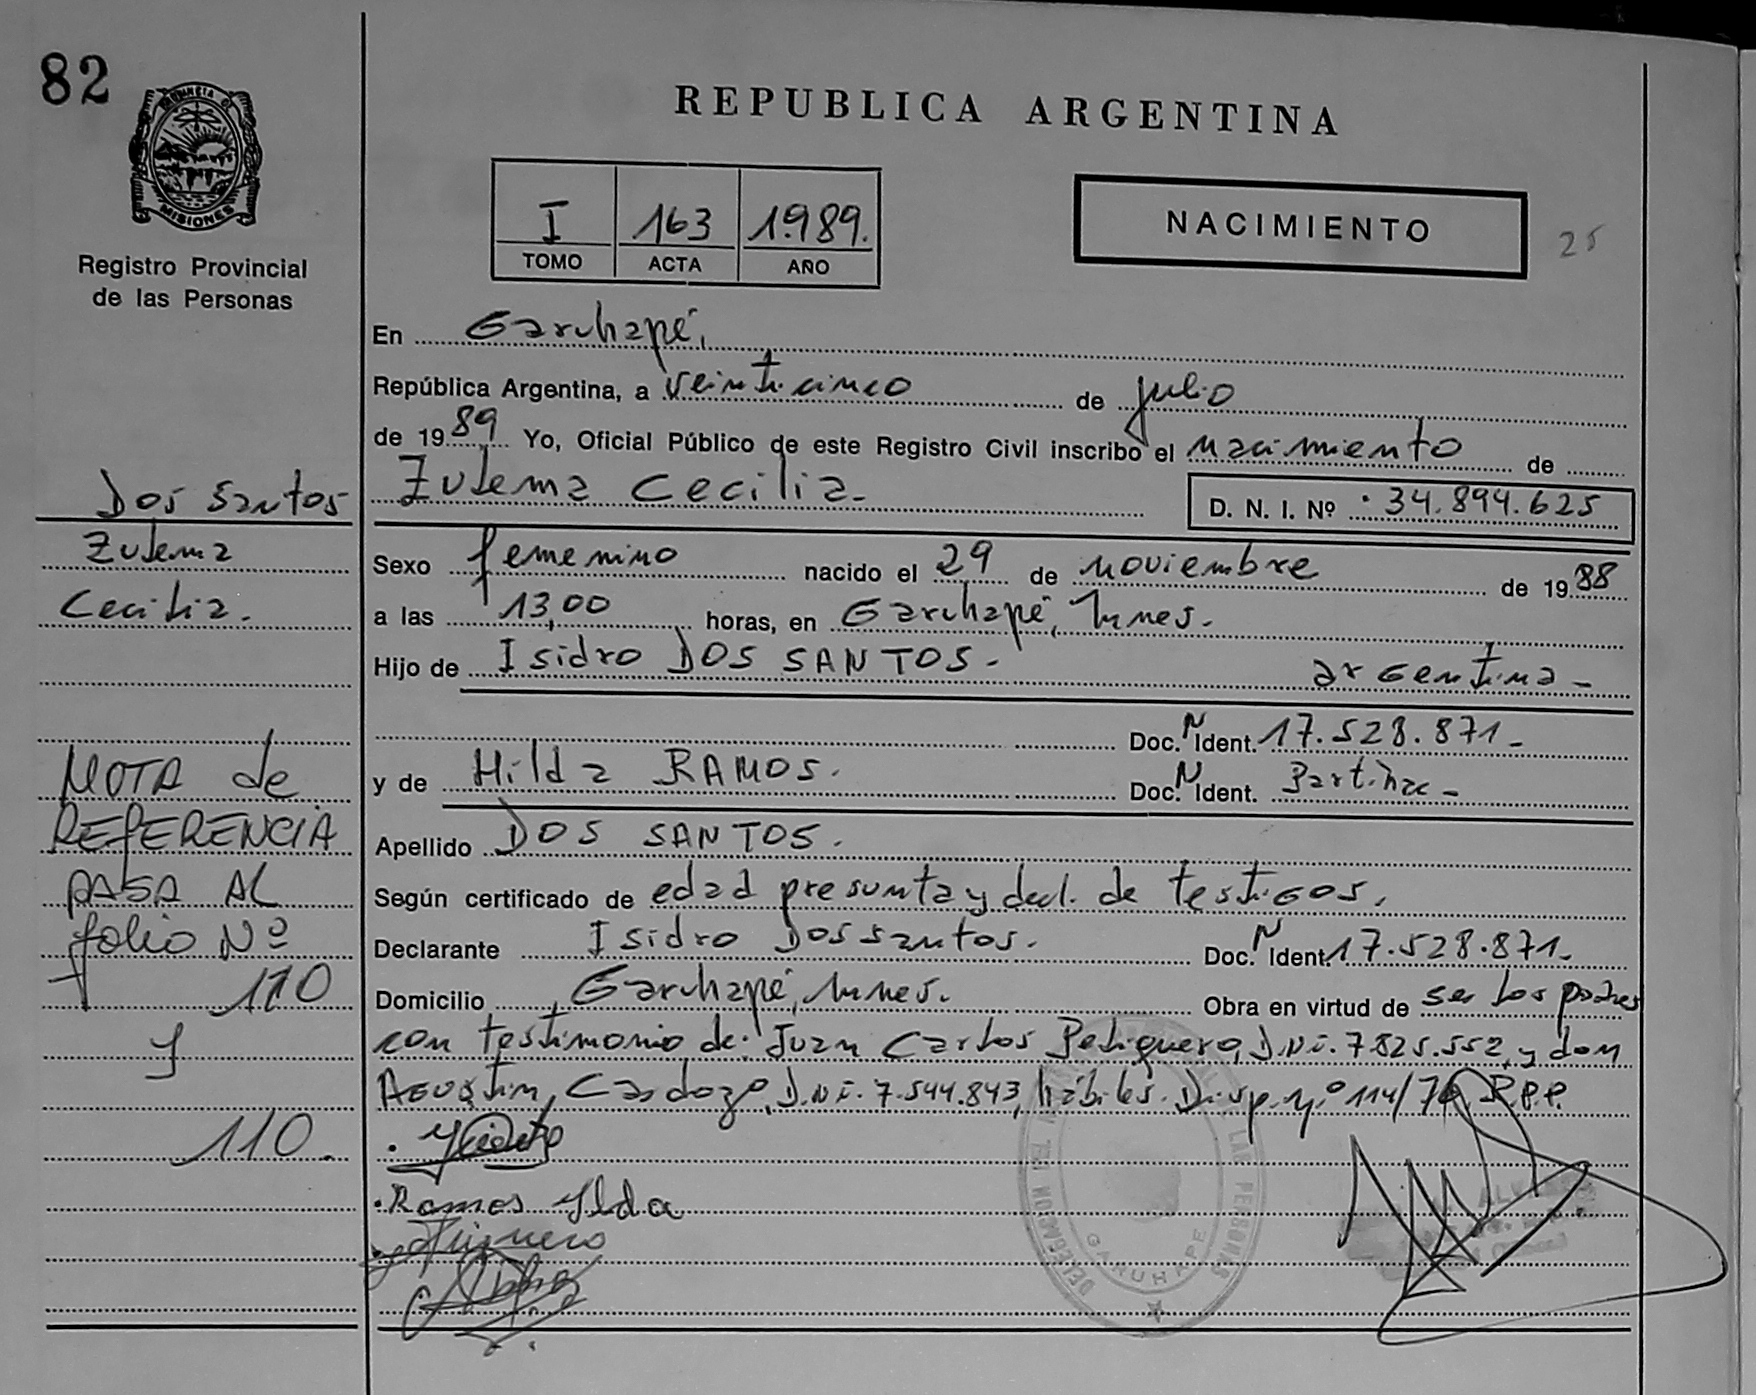 82
PROVINCIA DE
MISIONES
Registro Provincial
de las Personas
REPUBLICA ARGENTINA
I 163 1.989.
TOMO ACTA AÑO
NACIMIENTO
25
En Garuhapé,
República Argentina, a veinticinco de julio
de 19 89 Yo, Oficial Público de este Registro Civil inscribo el nacimiento de
Zulema Cecilia.
D. N. I. Nº 34.894.625
Dos Santos
Zulema
Cecilia.
Sexo femenino nacido el 29 de noviembre de 19 88
a las 13,00 horas, en Garuhapé, Mnes.
Hijo de Isidro DOS SANTOS. argentina
Doc. N Ident. 17.528.871.
y de Hilda RAMOS. Doc. N Ident.
Apellido DOS SANTOS.
Según certificado de edad presunta y decl. de testigos.
Declarante Isidro Dos Santos. Doc. N Ident. 17.528.871.
Domicilio Garuhapé, Mnes. Obra en virtud de ser los padres
con testimonio de: Juan Carlos D.N.I. 7.825.552, y don
Agustin Cardozo, D.N.I. 7.544.843, hábiles. Disp. nº 114/76 R.P.P.
NOTA de
REFERENCIA
PASA AL
folio Nº
110
y
110.
Ramos Ylda
DELEGACION
LAS PERSONAS
GARUHAPE